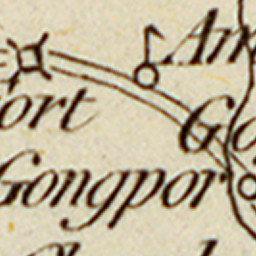 Am
ort
Go
Gongpor